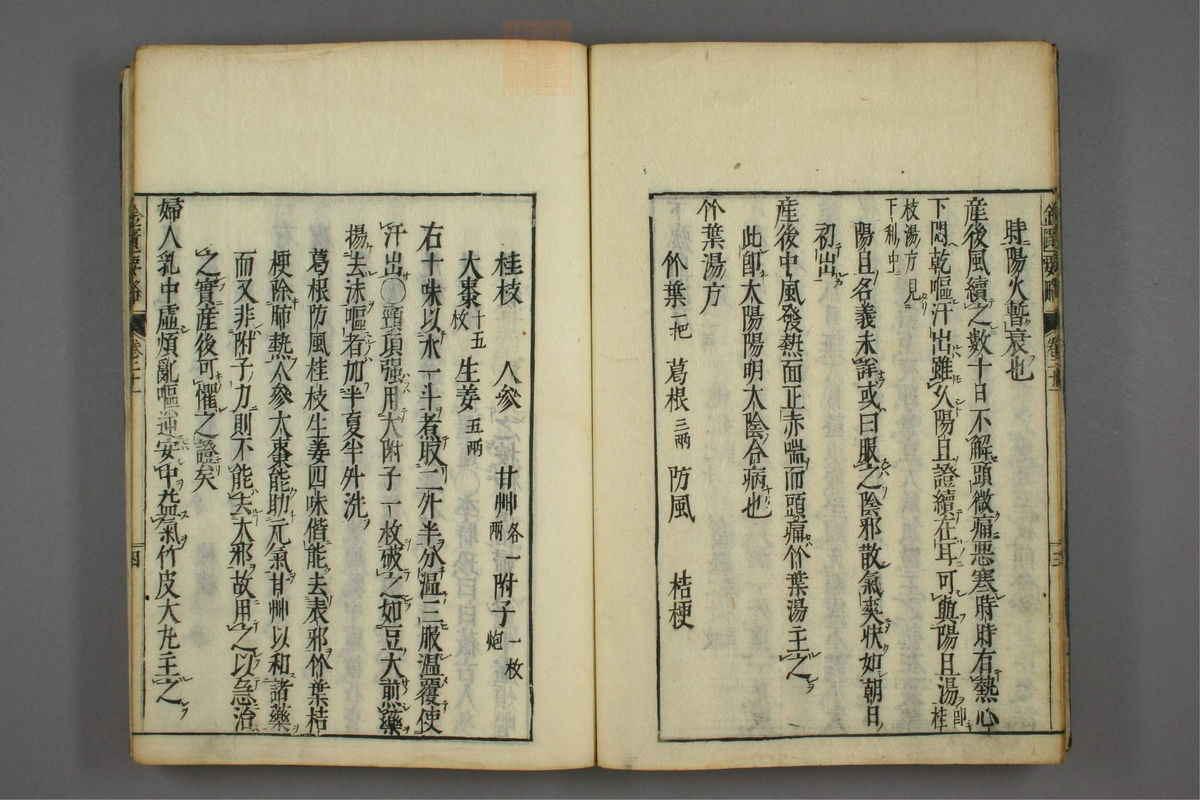 時陽火暫衰也
產後風續之數十日不解頭微痛惡寒時時有熱心
下悶乾嘔汗出雖久陽旦證續在耳可與陽旦湯即桂
枝湯方見
下利中
陽旦名義未詳或曰服之陰邪散氣爽狀如朝日
初出
產後中風發熱面正赤喘而頭痛竹葉湯主之
此即太陽陽明太陰合病也
竹葉湯方
竹葉一把 葛根三兩 防風 桔梗
桂枝 人參 甘艸各一兩 附子一枚炮
大棗十五枚 生姜五兩
右十味以水一斗煮取二升半分溫三服溫覆使
汗出○頸項强用大附子一枚破之如豆大煎藥
揚去沫嘔者加半夏半升洗
葛根防風桂枝生姜四味偕能去表邪竹葉桔
梗除肺熱人參大棗能助元氣甘艸以和諸藥
而又非附子力則不能去大邪故用之以急治
之實產後可懼之證矣
婦人乳中虛煩亂嘔逆安中益氣竹皮大丸主之
金匱要略 卷二十一 四